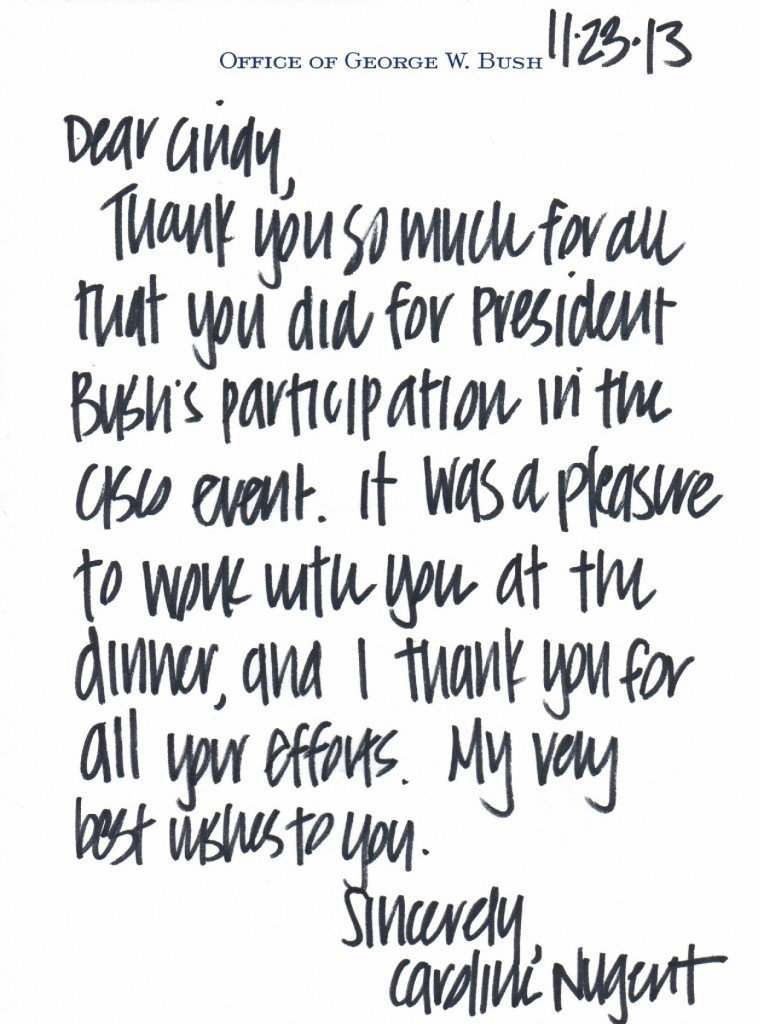 Office of George W. Bush 11.23.13
Dear Cindy,
Thank you so much for all
that you did for President
Bush's participation in the
Cisco event. It was a pleasure
to work with you at the
dinner, and I thank you for
all your efforts. My very
best wishes to you.
Sincerely,
Caroline Nugent